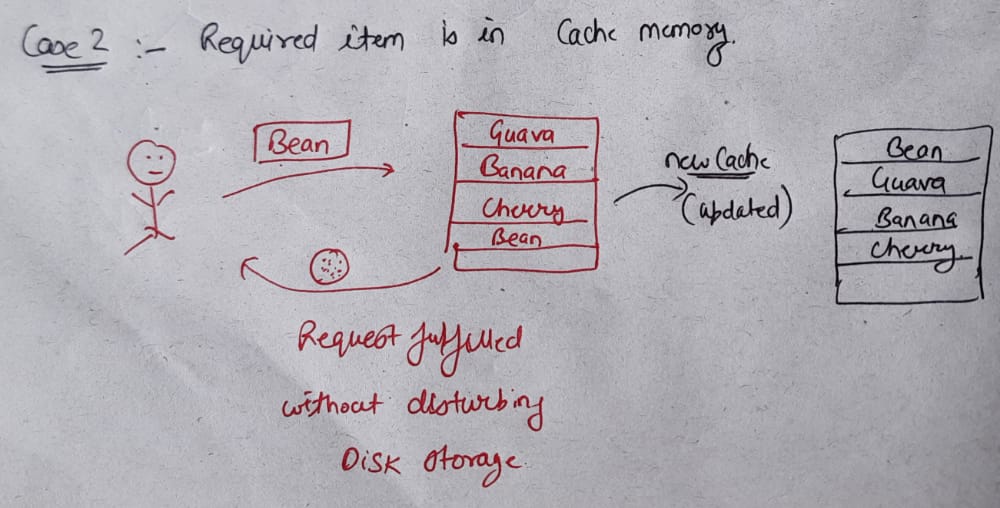 Case 2 :- Required item is in Cache memory.
Bean
Guava
Banana
Cherry
Bean
new Cache
(updated)
Bean
Guava
Banana
Cherry
Request fulfilled
without disturbing
Disk storage.